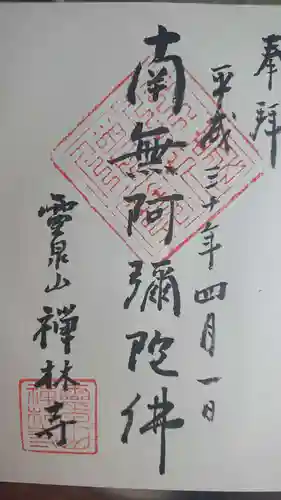 奉拝
平成三十年四月一日
南無阿彌陀佛
霊泉山
禅林寺